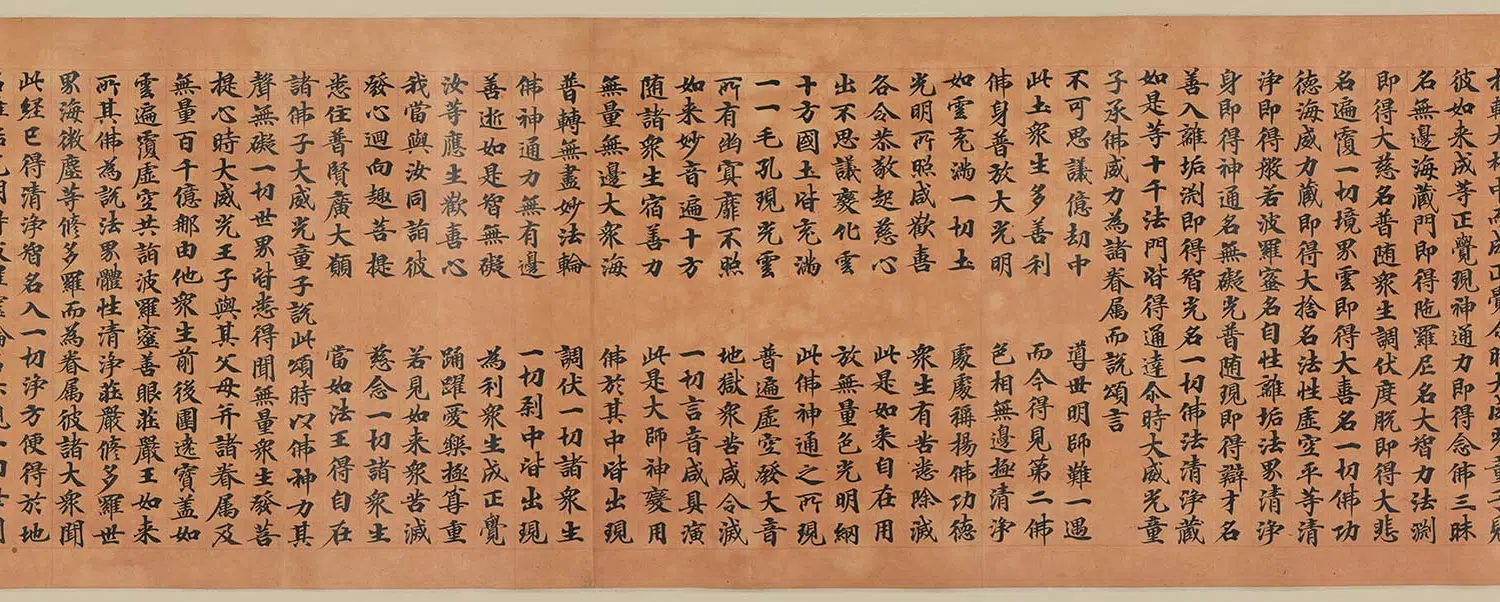 彼如来成等正覺現神通力即得念佛三昧
名無邊海藏門即得陁羅尼名大智力法渕
即得大慈名普随衆生調伏度脱即得大悲
名遍覆一切境界雲即得大善名一切佛功
德海威力藏即得大捨名法性虚空平等清
浄即得般若波羅蜜名自性離垢法界清浄
身即得神通名無礙光普随現即得辯才名
善入離垢渕即得智光名一切佛法清浄藏
如是等十千法門皆得通達尒時大威光童
子承佛威力為諸眷属而說頌言
不可思議億劫中 導世明師難一遇
此土衆生多善利 而今得見第二佛
佛身普放大光明 色相無邊極清浄
如雲充滿一切土 處處稱揚佛功德
光明所照咸歡喜 衆生有苦悉除滅
各令恭敬起慈心 此是如来自在用
出不思議變化雲 放無量色光明網
十方國土皆充滿 此佛神通之所現
一一毛孔現光雲 普遍虚空發大音
所有幽冥靡不照 地獄衆苦咸令滅
如来妙音遍十方 一切言音咸具演
随諸衆生宿善力 此是大師神變用
無量無邊大衆海 佛於其中皆出現
普轉無盡妙法輪 調伏一切諸衆生
佛神通力無有邊 一切剎中皆出現
善逝如是智無礙 為利衆生成正覺
汝等應生歡喜心 踊躍愛樂極尊重
我當與汝同詣彼 若見如来衆苦滅
發心迴向趣菩提 慈念一切諸衆生
悉住普賢廣大願 當如法王得自在
諸佛子大威光童子說此頌時以佛神力其
聲無礙一切世界皆悉得聞無量衆生發菩
提心時大威光王子與其父母并諸眷属及
無量百千億那由他衆生前後圍遶寶蓋如
雲遍覆虚空共詣波羅蜜善眼莊嚴王如来
所其佛為說法界體性清浄莊嚴修多羅世
界海微塵等修多羅而為眷属彼諸大衆聞
此經已得清浄智名入一切浄方便得於地